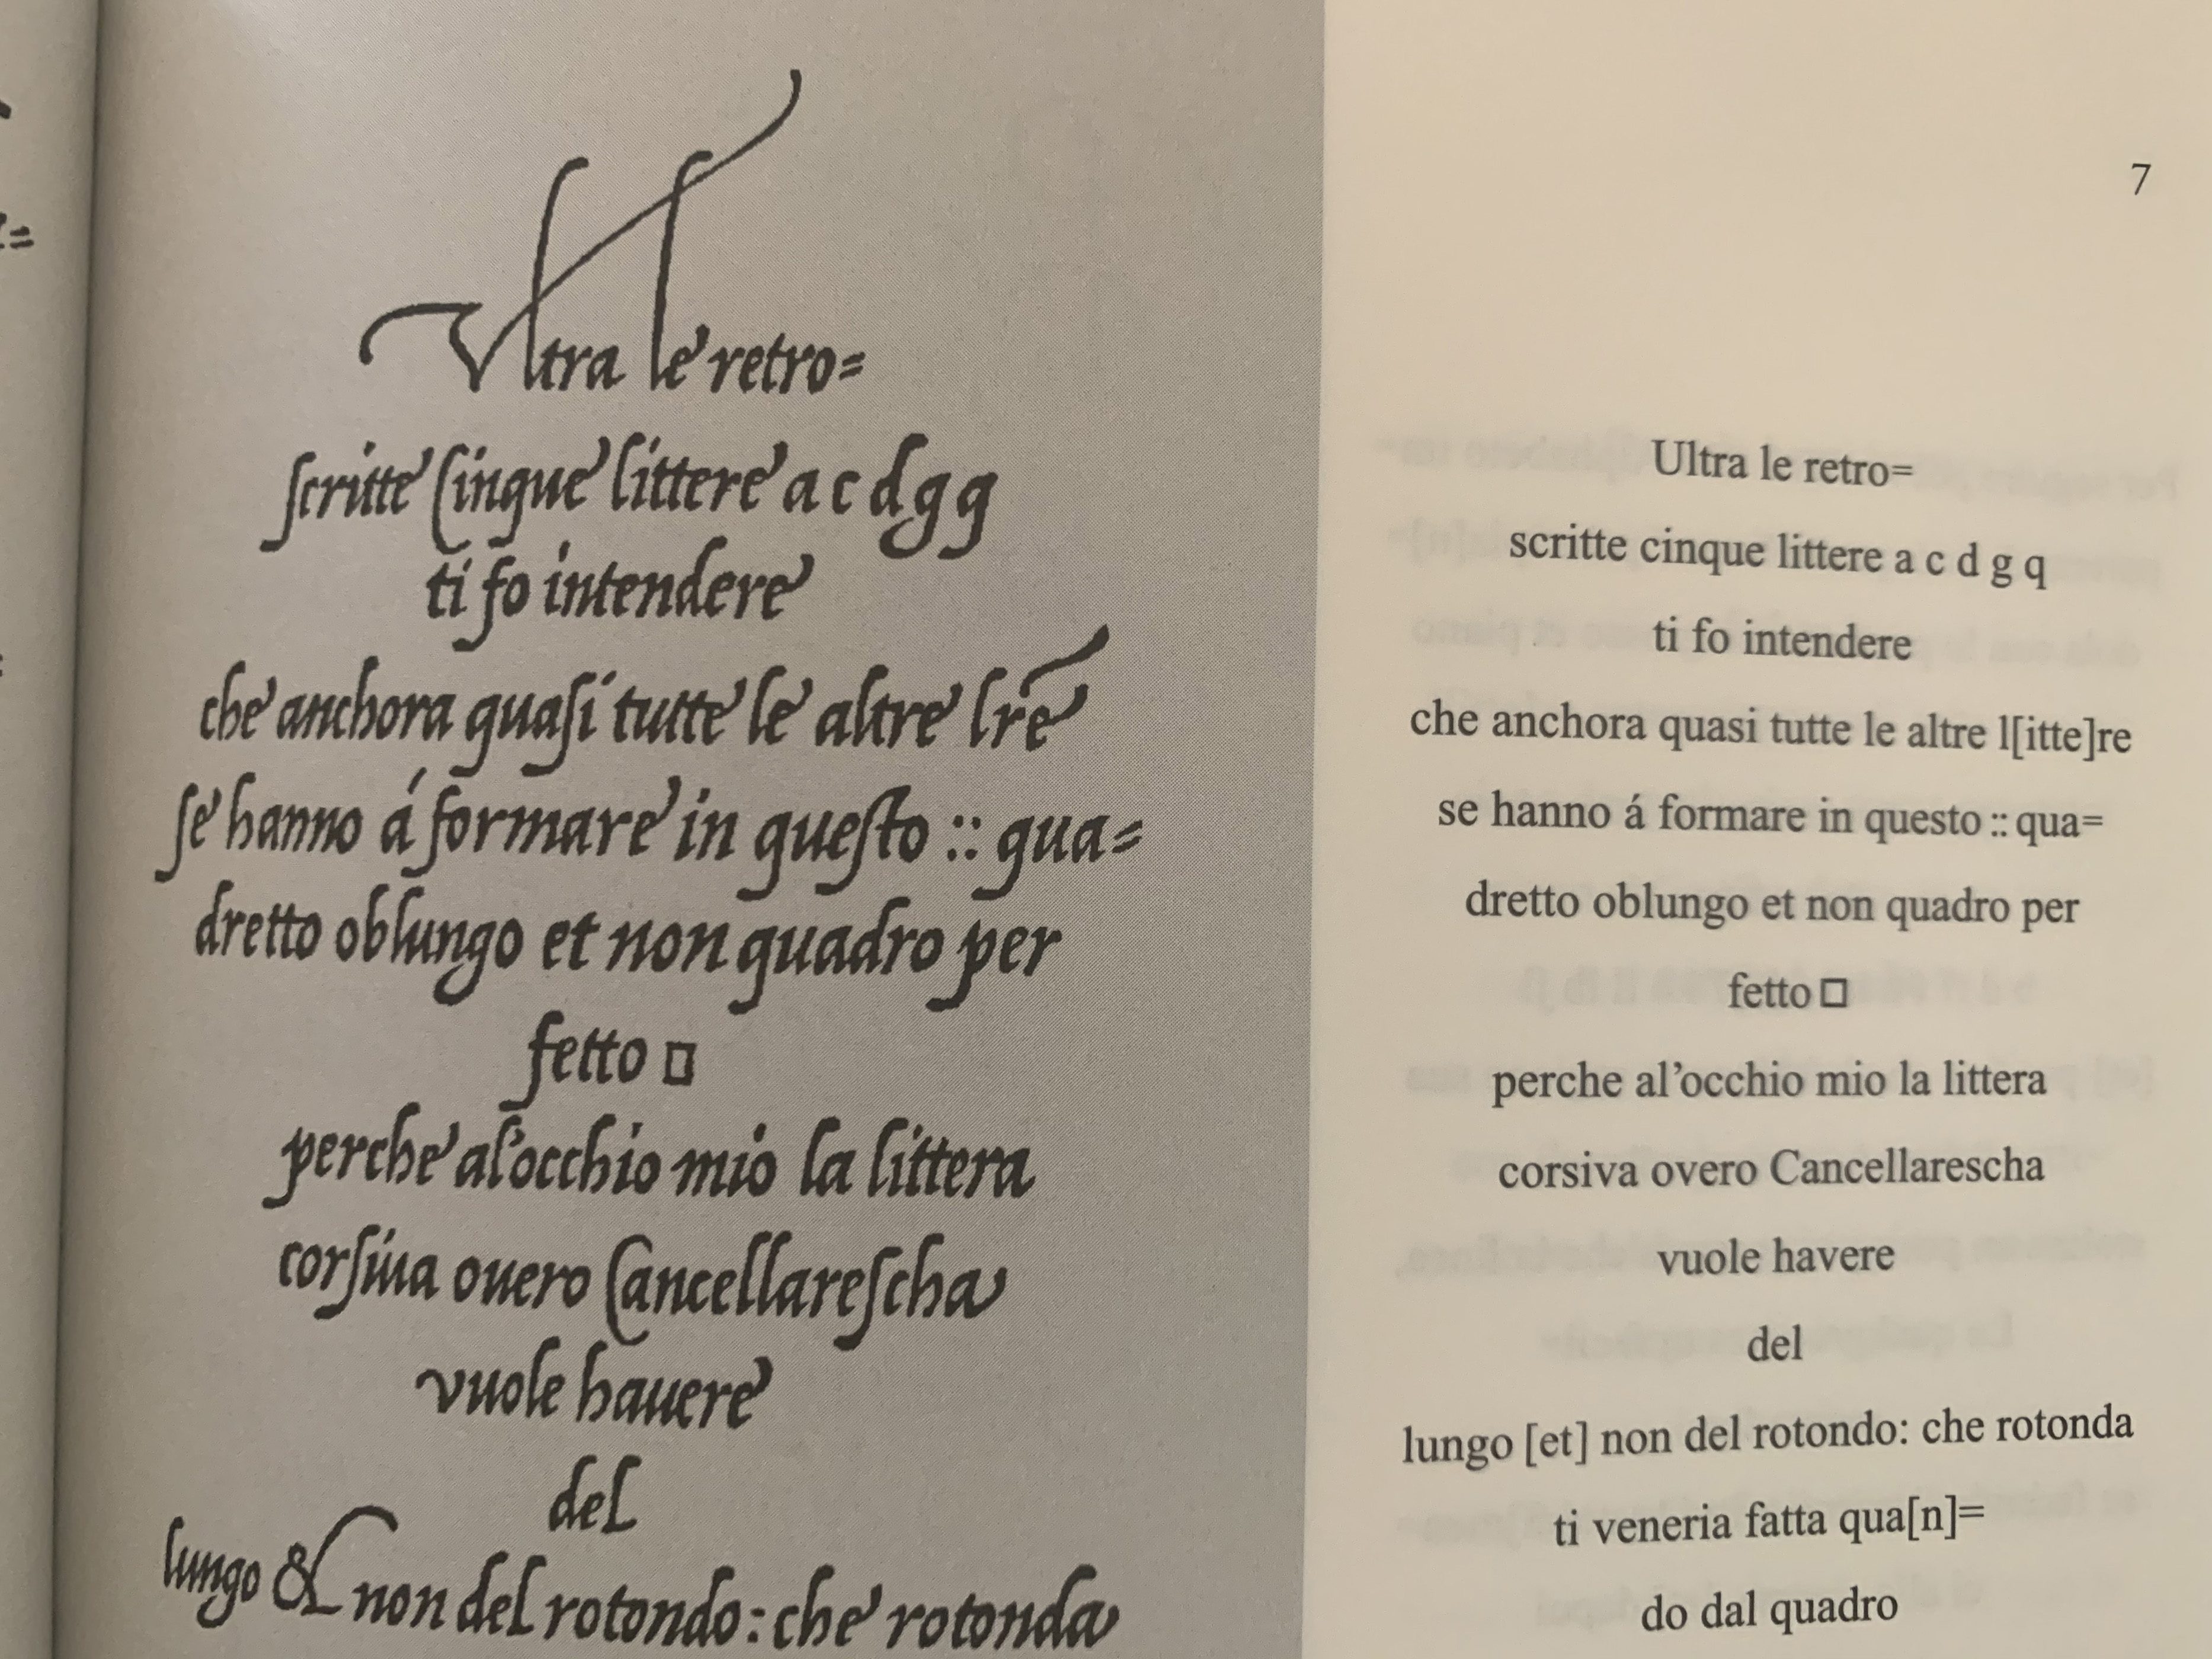 Vltra le retro=
ſcritte Cinque littere a c d g q
ti fo intendere
che anchora quaſi tutte le altre lr̃e
ſe hanno á formare in queſto :: qua=
dretto oblungo et non quadro per
fetto □
perche al'occhio mio la littera
corſiua ouero Cancellareſcha
vuole hauere
del
lungo & non del rotondo: che rotonda
7
Ultra le retro=
scritte cinque littere a c d g q
ti fo intendere
che anchora quasi tutte le altre l[itte]re
se hanno á formare in questo :: qua=
dretto oblungo et non quadro per
fetto □
perche al’occhio mio la littera
corsiva overo Cancellarescha
vuole havere
del
lungo [et] non del rotondo: che rotonda
ti veneria fatta qua[n]=
do dal quadro